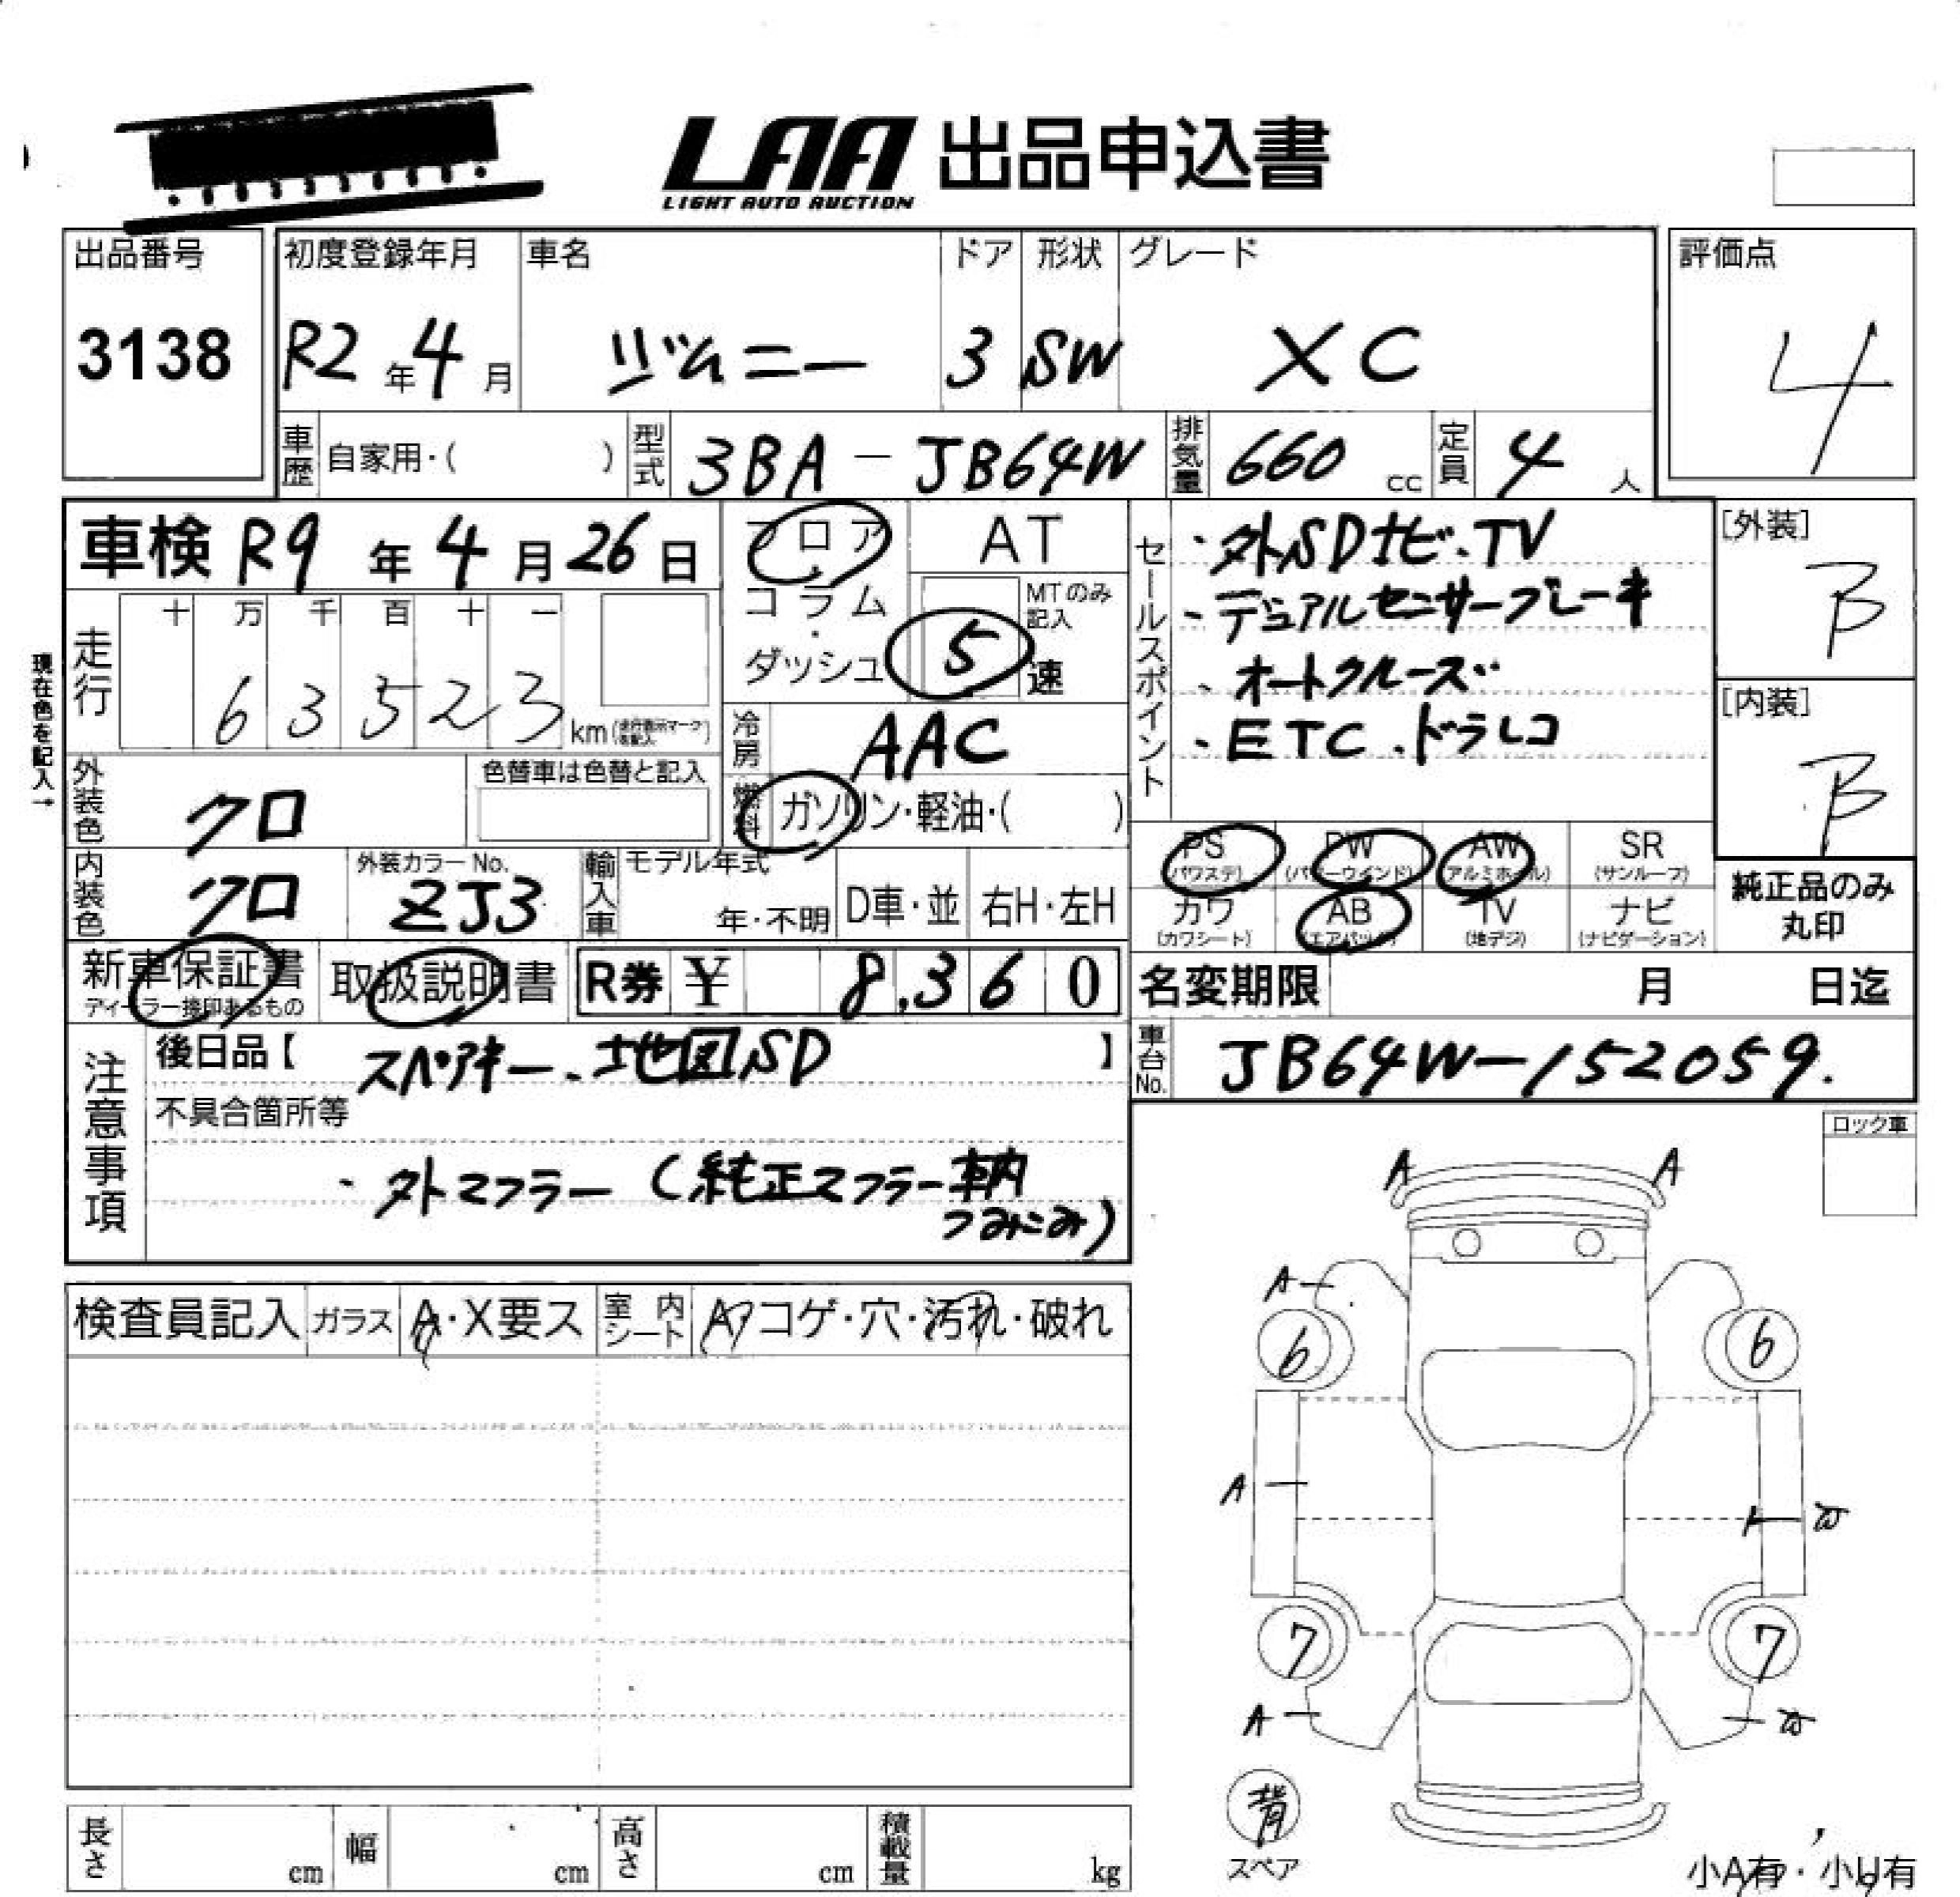 LAA 出品申込書
LIGHT AUTO AUCTION
出品番号
3138
初度登録年月 車名 ドア 形状 グレード
R2年4月 ジムニー 3 SW XC
評価点
4
車歴 自家用・( ) 型式 3BA-JB64W 排気量 660cc 定員 4人
車検 R9年4月26日
フロア・コラム・ダッシュ
AT
MTのみ記入
5速
現在色を記入→
走行 十万千百十一
63523 km(走行表示マークを記入)
冷房 AAC
燃料 ガソリン・軽油・( )
外装色 クロ
色替車は色替と記入
内装色 クロ
外装カラーNo. ZJ3
輸入車 モデル年式 年・不明 D車・並 右H・左H
セールスポイント
・外SDナビ、TV
・デュアルセンサーブレーキ
・オートクルーズ
・ETC、ドラレコ
[外装]
B
[内装]
B
PS AW SR
(パワステ) (パワーウインドウ) (アルミホイール) (サンルーフ)
カワ AB TV ナビ
(カワシート) (エアバッグ) (地デジ) (ナビゲーション)
純正品のみ
丸印
新車保証書
ディーラー捺印あるもの
取扱説明書
R券 ¥ 8,360
名変期限 月 日迄
車台No. JB64W-152059.
注意事項
後日品【 スペアキー、地図SD 】
不具合箇所等
・外マフラー(純正マフラー車内
つみこみ)
ロック車
検査員記入 ガラス A・X要ス 室内シート A コゲ・穴・汚れ・破れ
A A
A
6 6
A
7 7
A
背
スペア
小A有・小U有
長さ cm 幅 cm 高さ cm 積載量 kg